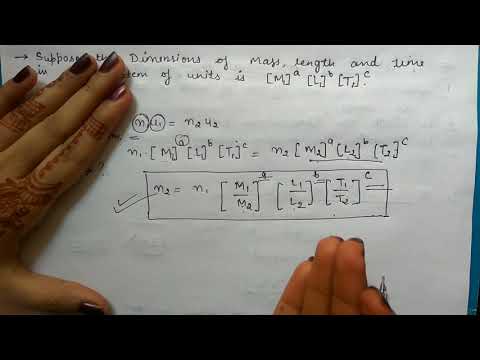 → Suppose the Dimensions of Mass, length and time
in tem of units is [M]ᵃ [L₁]ᵇ [T₁]ᶜ.
n₁u₁ = n₂u₂
n₁ [M₁]ᵃ [L₁]ᵇ [T₁]ᶜ = n₂ [M₂]ᵃ [L₂]ᵇ [T₂]ᶜ
?
n₂ = n₁ [M₁/M₂]ᵃ [L₁/L₂]ᵇ [T₁/T₂]ᶜ